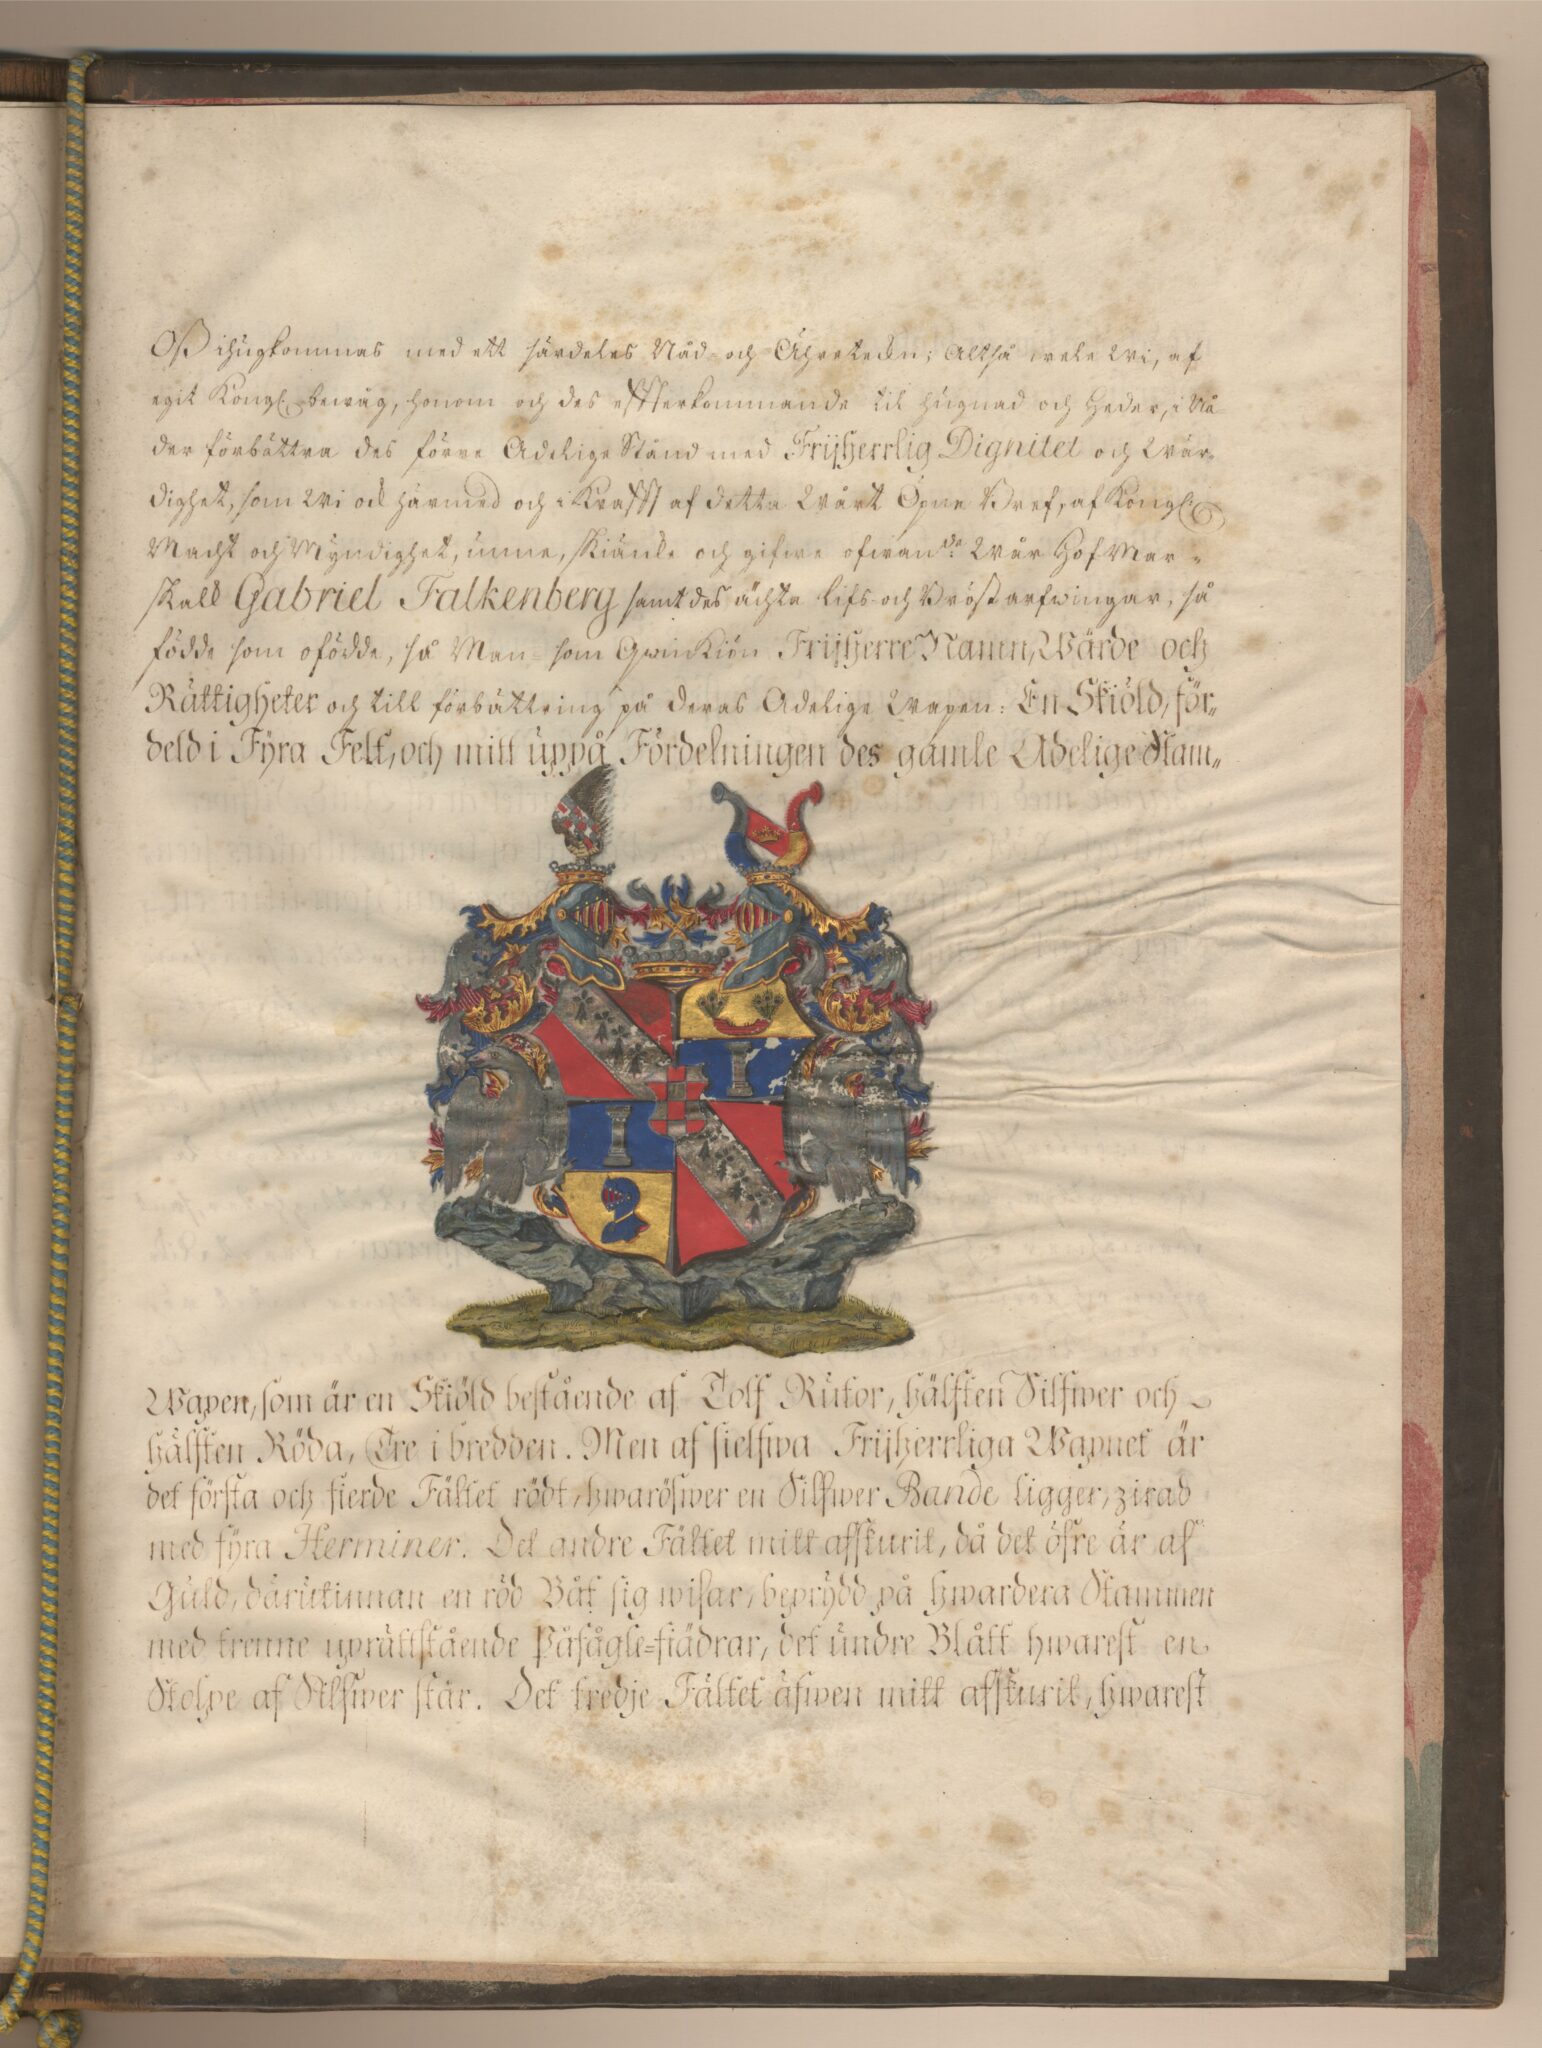 Oß ihugkommas med ett särdeles Nåd- och Ähretekn; Altså wele Wi, af
egit Kongl. bewåg, honom och des effterkommande til hugnad och Heder, i Nå
der förbättra des förre Adelige Stånd med Frijherrlig Dignitet och Wär-
dighet, som Wi ock härmed och i Krafft af detta Wårt Öpne Bref, af Kongl.
Macht och Myndighet, unne, skiänke och gifwe ofwanbe. Wår Hof Mar-
skalk Gabriel Falkenberg samt des ächta Lifs- och Bröst arfwingar, så
födde som ofödde, så Man- som Qwinkiön Frijherre Namn, Wärde och
Rättigheter och till förbättring på deras Adelige Wapen: En Skiöld, för-
deld i Fyra Felt, och mitt uppå Fördelningen des gamle Adelige Stam-
Wapen, som är en Skiöld bestående af Tolf Rutor, hälften Silfwer och
hälften Röda, Tre i bredden. Men af sielfwa Frijherrliga Wapnet är
det första och fierde Fältet rödt, hwaröfwer en Silfwer Bande ligger, zirad
med fyra Herminer. Det andre Fältet mitt afskurit, då det öfre är af
Guld, därutinnan en röd Båt sig wisar, beprydd på hwardera Stammen
med trenne uprättstående Påfågle-fiädrar, det undre Blått hwarest en
Stolpe af Silfwer står. Det tredje Fältet äfwen mitt afskurit, hwarest